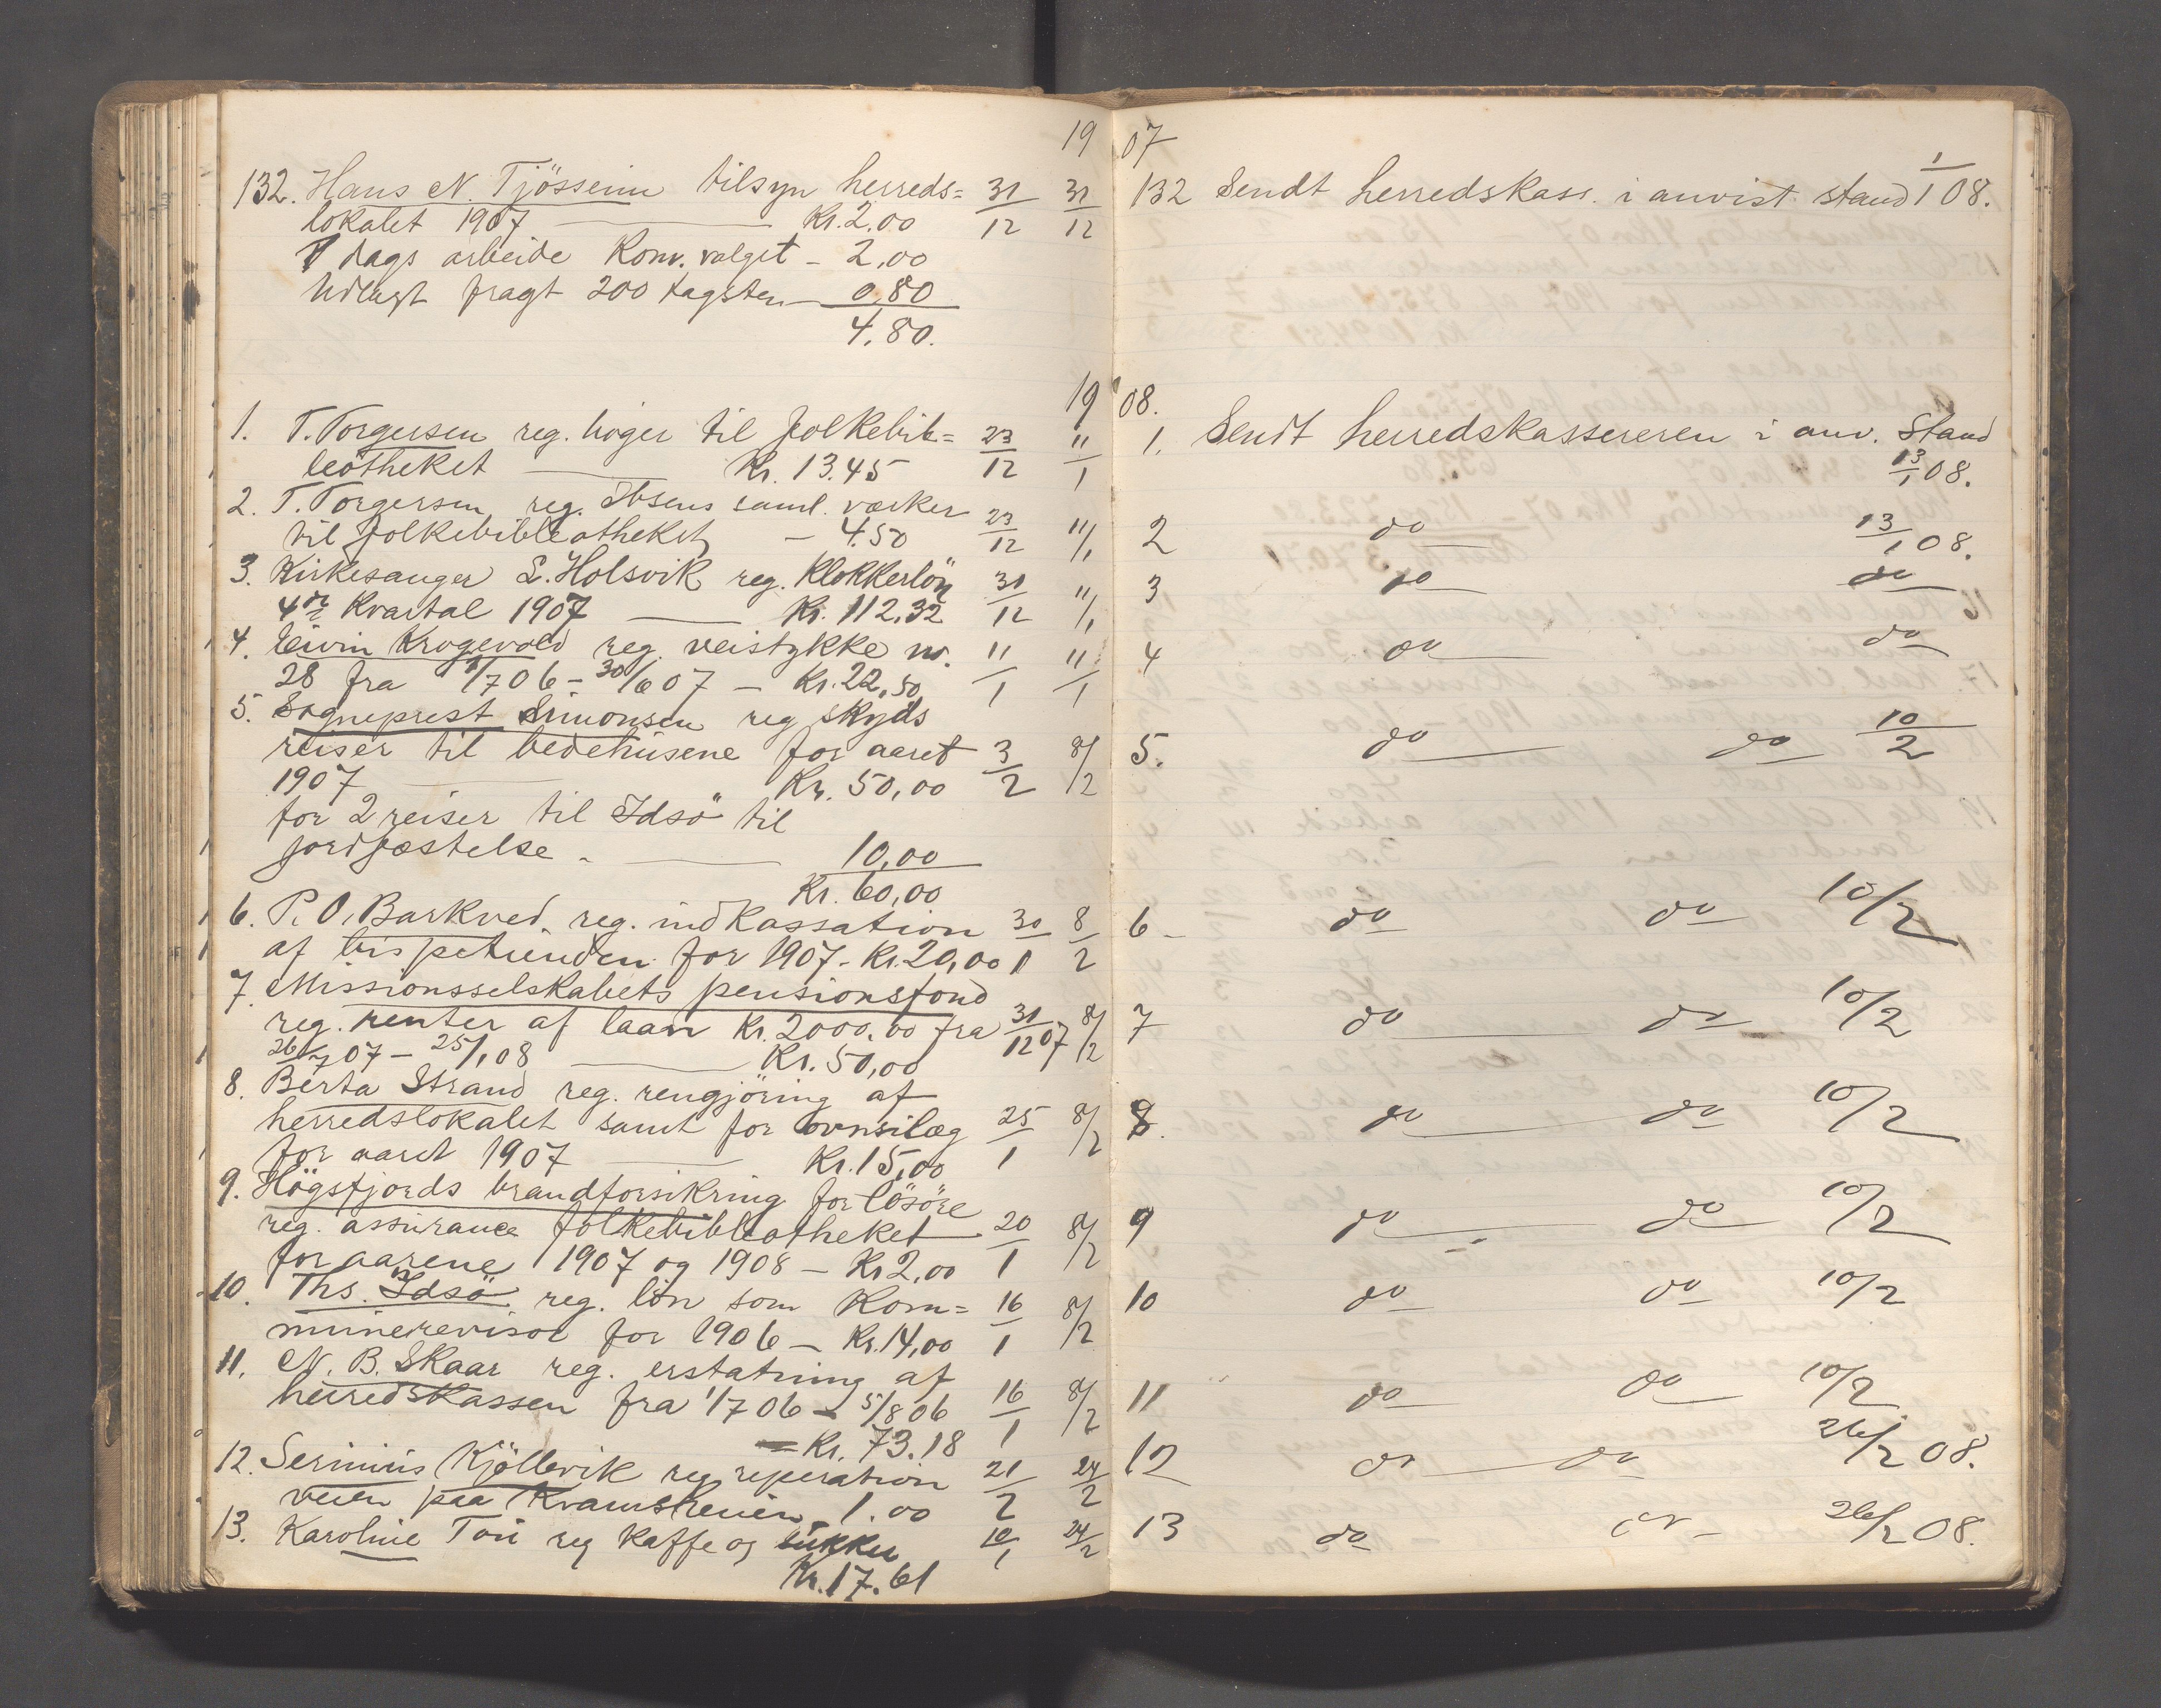 19 07
132. Hans N. Tjösseim tilsyn herreds= 31/12 31/12
lokalet 1907 — Kr. 2.00
1 dags arbeide Kom. valget - 2,00
Udlagt fragt 200 tagsten — 0,80
4,80.
19 08.
1. T. Torgersen reg. böger til folkebib= 23/12 11/1
leotheket — Kr. 13.45
2. T. Torgersen reg. Ibsens saml. værker 23/12 11/1
til folkebibleotheket — 4.50
3. Kirkesanger L. Holsvik reg. Klokkerlön 31/12 11/1
4de Kvartal 1907 — Kr. 112,32
4. Eivin Krogevold reg. veistykke no. 11/1 11/1
28 fra 1/7 06 - 30/6 07 — Kr. 22,50
5. Sogneprest Simonsen reg skyds
reiser til bedehusene for aaret 3/2 8/2
1907 — Kr. 50,00
for 2 reiser til Idsö til
jordfæstelse. — 10,00
Kr. 60,00
6. P. O. Barkved. reg. indkassation 30/1 8/2
af bispetienden for 1907. Kr. 20,00
7. Missionsselskabets pensionsfond
reg. renter af laan Kr. 2000.00 fra 31/12 07 8/2
26/7 07 - 25/1 08 — Kr. 50,00
8. Berta Strand reg. rengjöring af
herredslokalet samt for ovnsilæg 25/1 8/2
for aaret 1907 — Kr. 15,00
9. Högsfjords brandforsikring for lösöre
reg. assurance folkebibleotheket 20/1 8/2
for aarene 1907 og 1908 — Kr 2,00
10. Ths. Idsö reg. lön som Kom= 16/1 8/2
munerevisor for 1906 — Kr. 14,00
11. N. B. Skaar reg. erstatning af
herredskassen fra 1/7 06 - 5/8 06 16/1 8/2
= Kr. 73.18
12. Serinius Kjöllevik reg reperation 21/2 24/2
veien paa Kvamsheien. 1.00
13. Karoline Tou reg Kaffe og sukker 10/1 24/2
Kr. 17.61
132 Sendt herredskass. i anvist stand 1/1 08.
1. Sendt herredskassereren i anv. Stand
13/1 08.
2 do 13/1 08.
3 do do
4 do do
5. do do 10/2
6 - do do 10/2
7 do do 10/2
8. do do 10/2
9 do do 10/2
10 do do 10/2
11 " do do 10/2
12 do do 26/2 08.
13 do do 26/2 08.